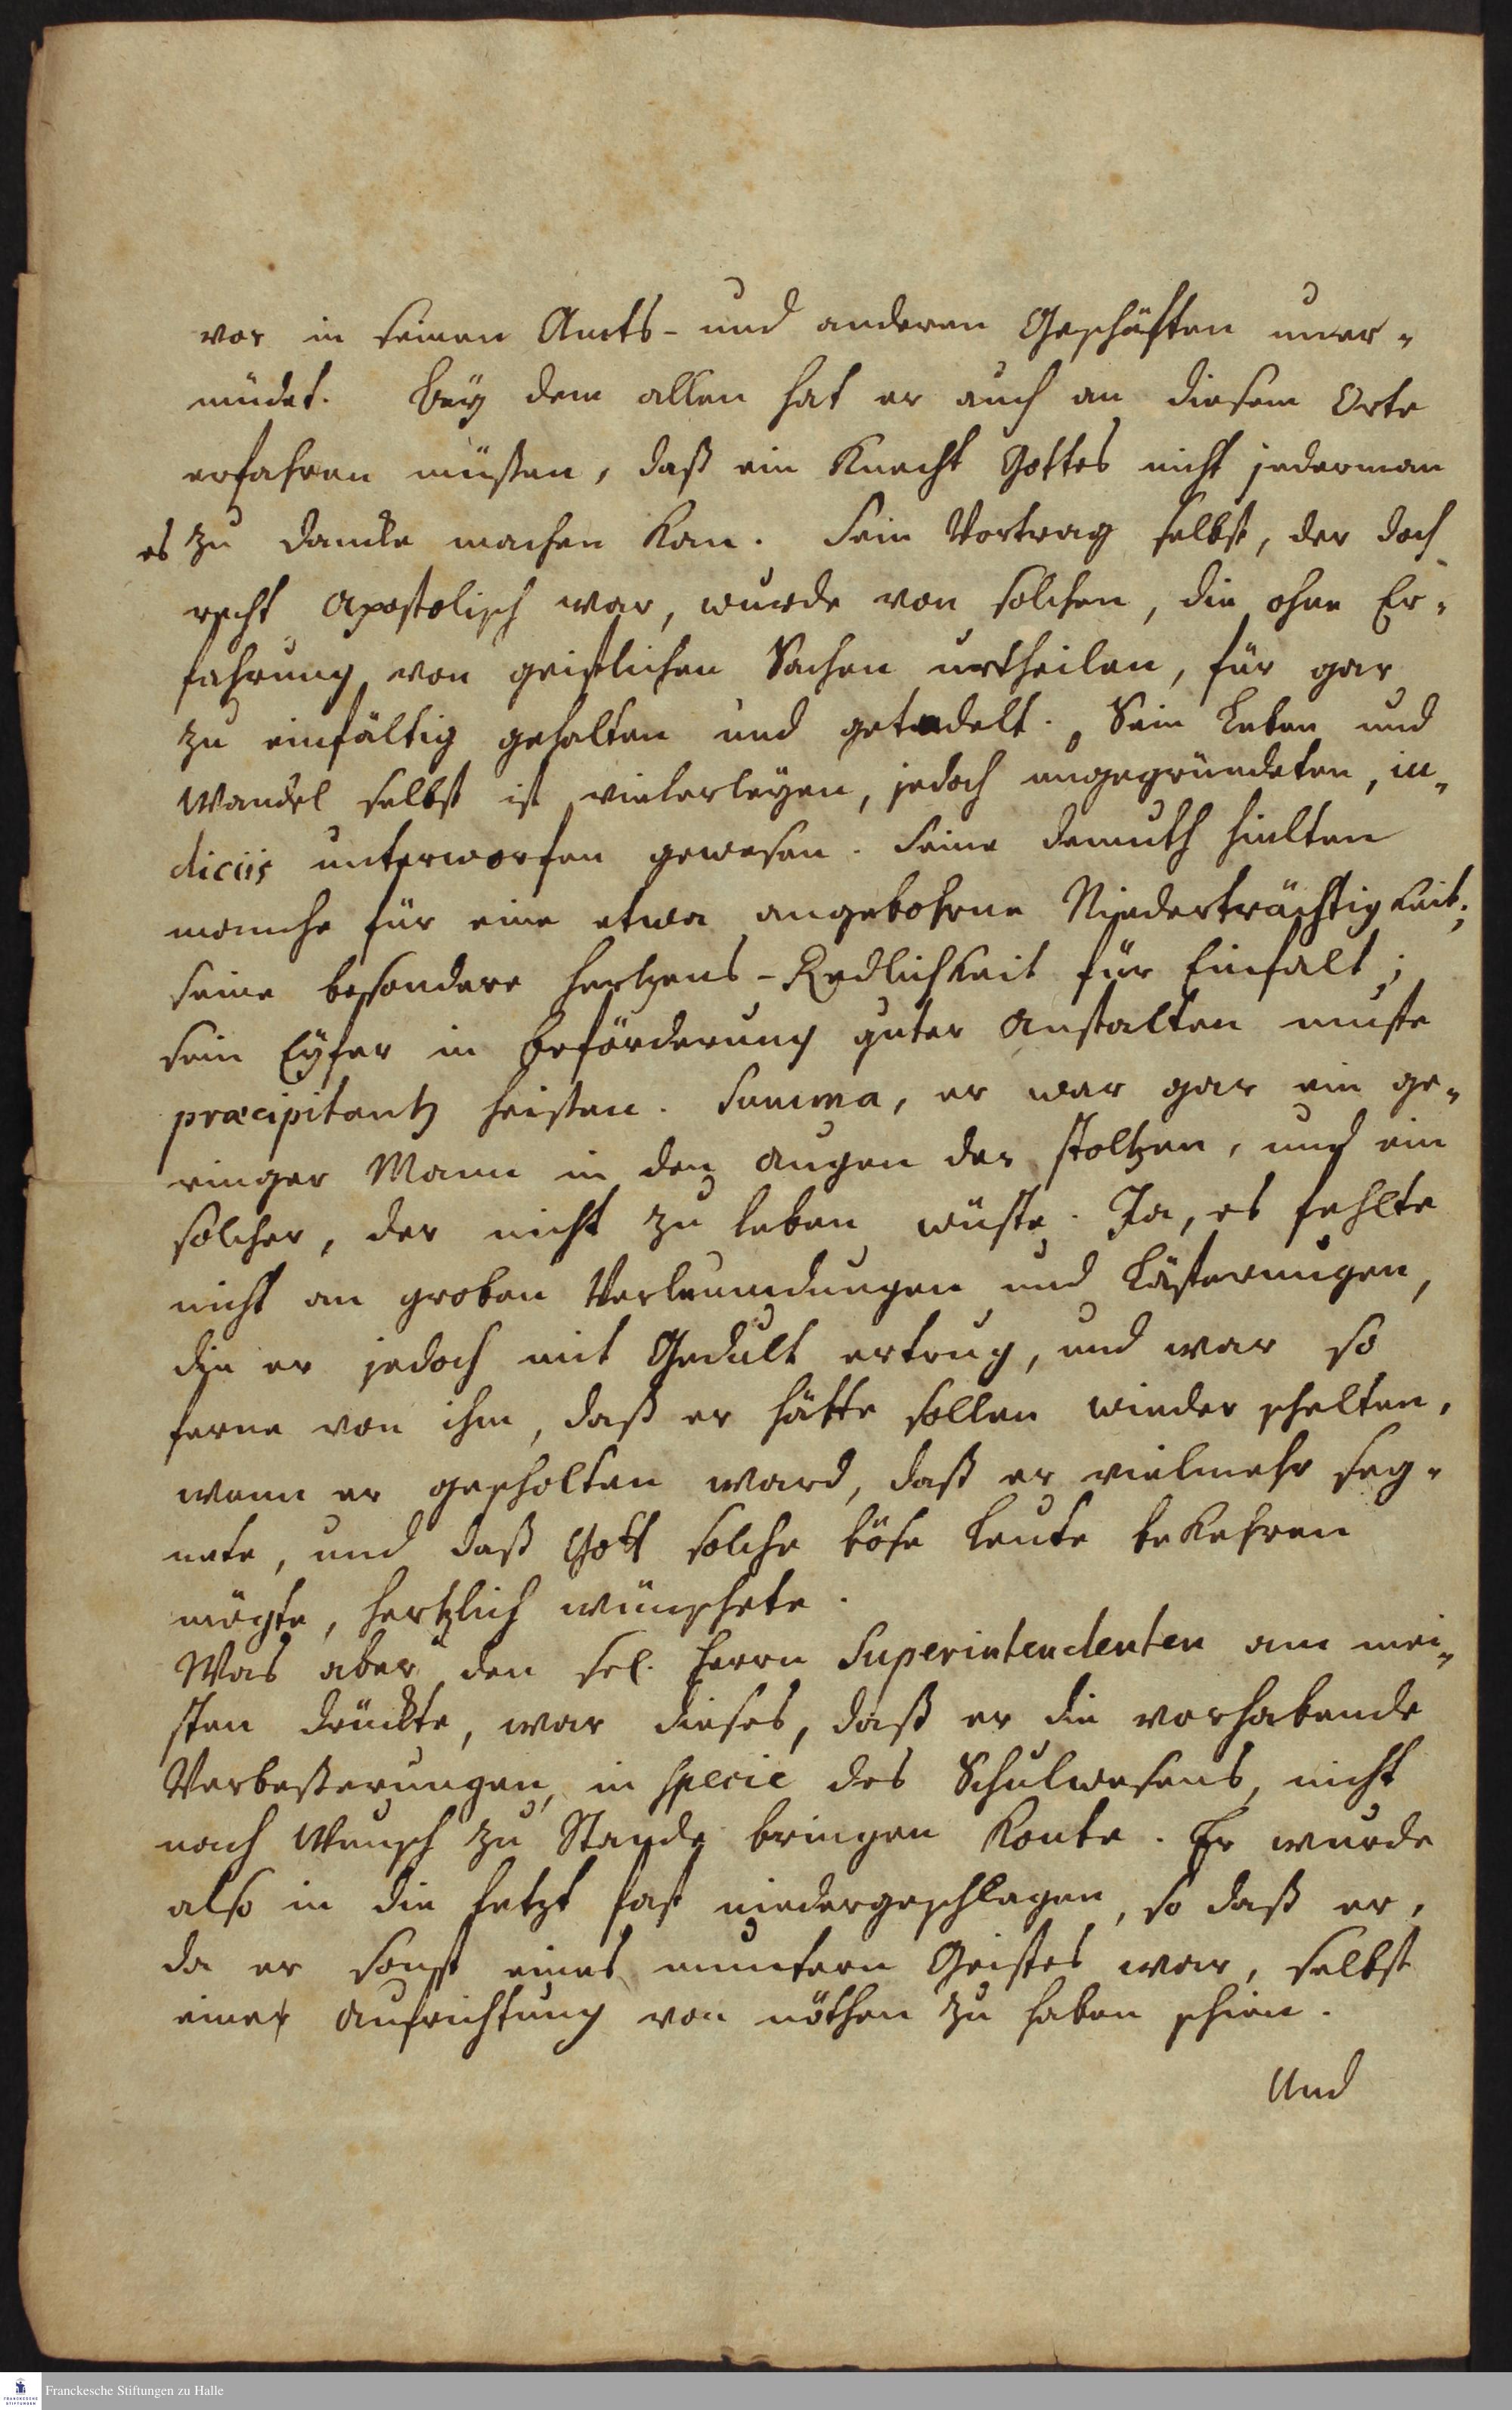 war in seinen Amts- und anderen Geschäften uner-
müdet. Bey dem allen hat er auch an diesem Orte
erfahren müßen, daß ein Knecht Gottes nicht jederman
es zu Dancke machen kan. Sein Vortrag selbst, der doch
recht Apostolisch war, wurde von solchen, die ohne Er-
fahrung von geistlichen Sachen urtheilen, für gar
zu einfältig gehalten und getadelt. Sein Leben und
Wandel selbst ist vielerleyen, jedoch ungegründeten, in-
diciis unterworfen gewesen. Seine Demuth hielten
manche für eine etwa angebohrne Niederträchtigkeit;
seine besondere Hertzens-Redlichkeit für Einfalt;
sein Eyfer in Beförderung guter Anstalten muste
præcipitantz heißen. Summa, er war gar ein ge-
ringer Mann in den Augen der stoltzen, und ein
solcher, der nicht zu leben wüste. Ja, es fehlte
nicht an groben Verleumdungen und Lästerungen,
die er jedoch mit Gedult ertrug, und war so
ferne von ihm, daß er hätte sollen wieder schelten,
wenn er gescholten ward, daß er vielmehr seg-
nete, und daß Gott solche böse Leute bekehren
mögte, hertzlich wünschete.
Was aber den sel. Herrn Superintendenten am mei-
sten drückte, war dieses, daß er die vorhabende
Verbeßerungen, in specie des Schulwesens, nicht
nach Wunsch zu Stande bringen konte. Er wurde
also in die letzt fast niedergeschlagen, so daß er,
da er sonst eines muntern Geistes war, selbst
einer Aufrichtung von nöthen zu haben schien.
Und
Franckesche Stiftungen zu Halle